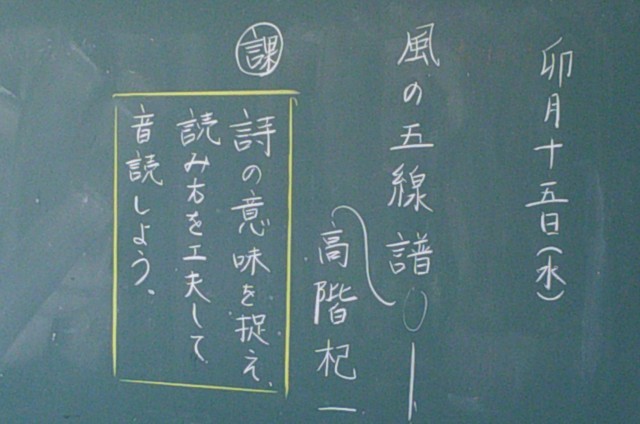 卯月十五日(水)
風の五線譜
高階杞一
課
詩の意味を捉え、
読み方を工夫して
音読しよう。